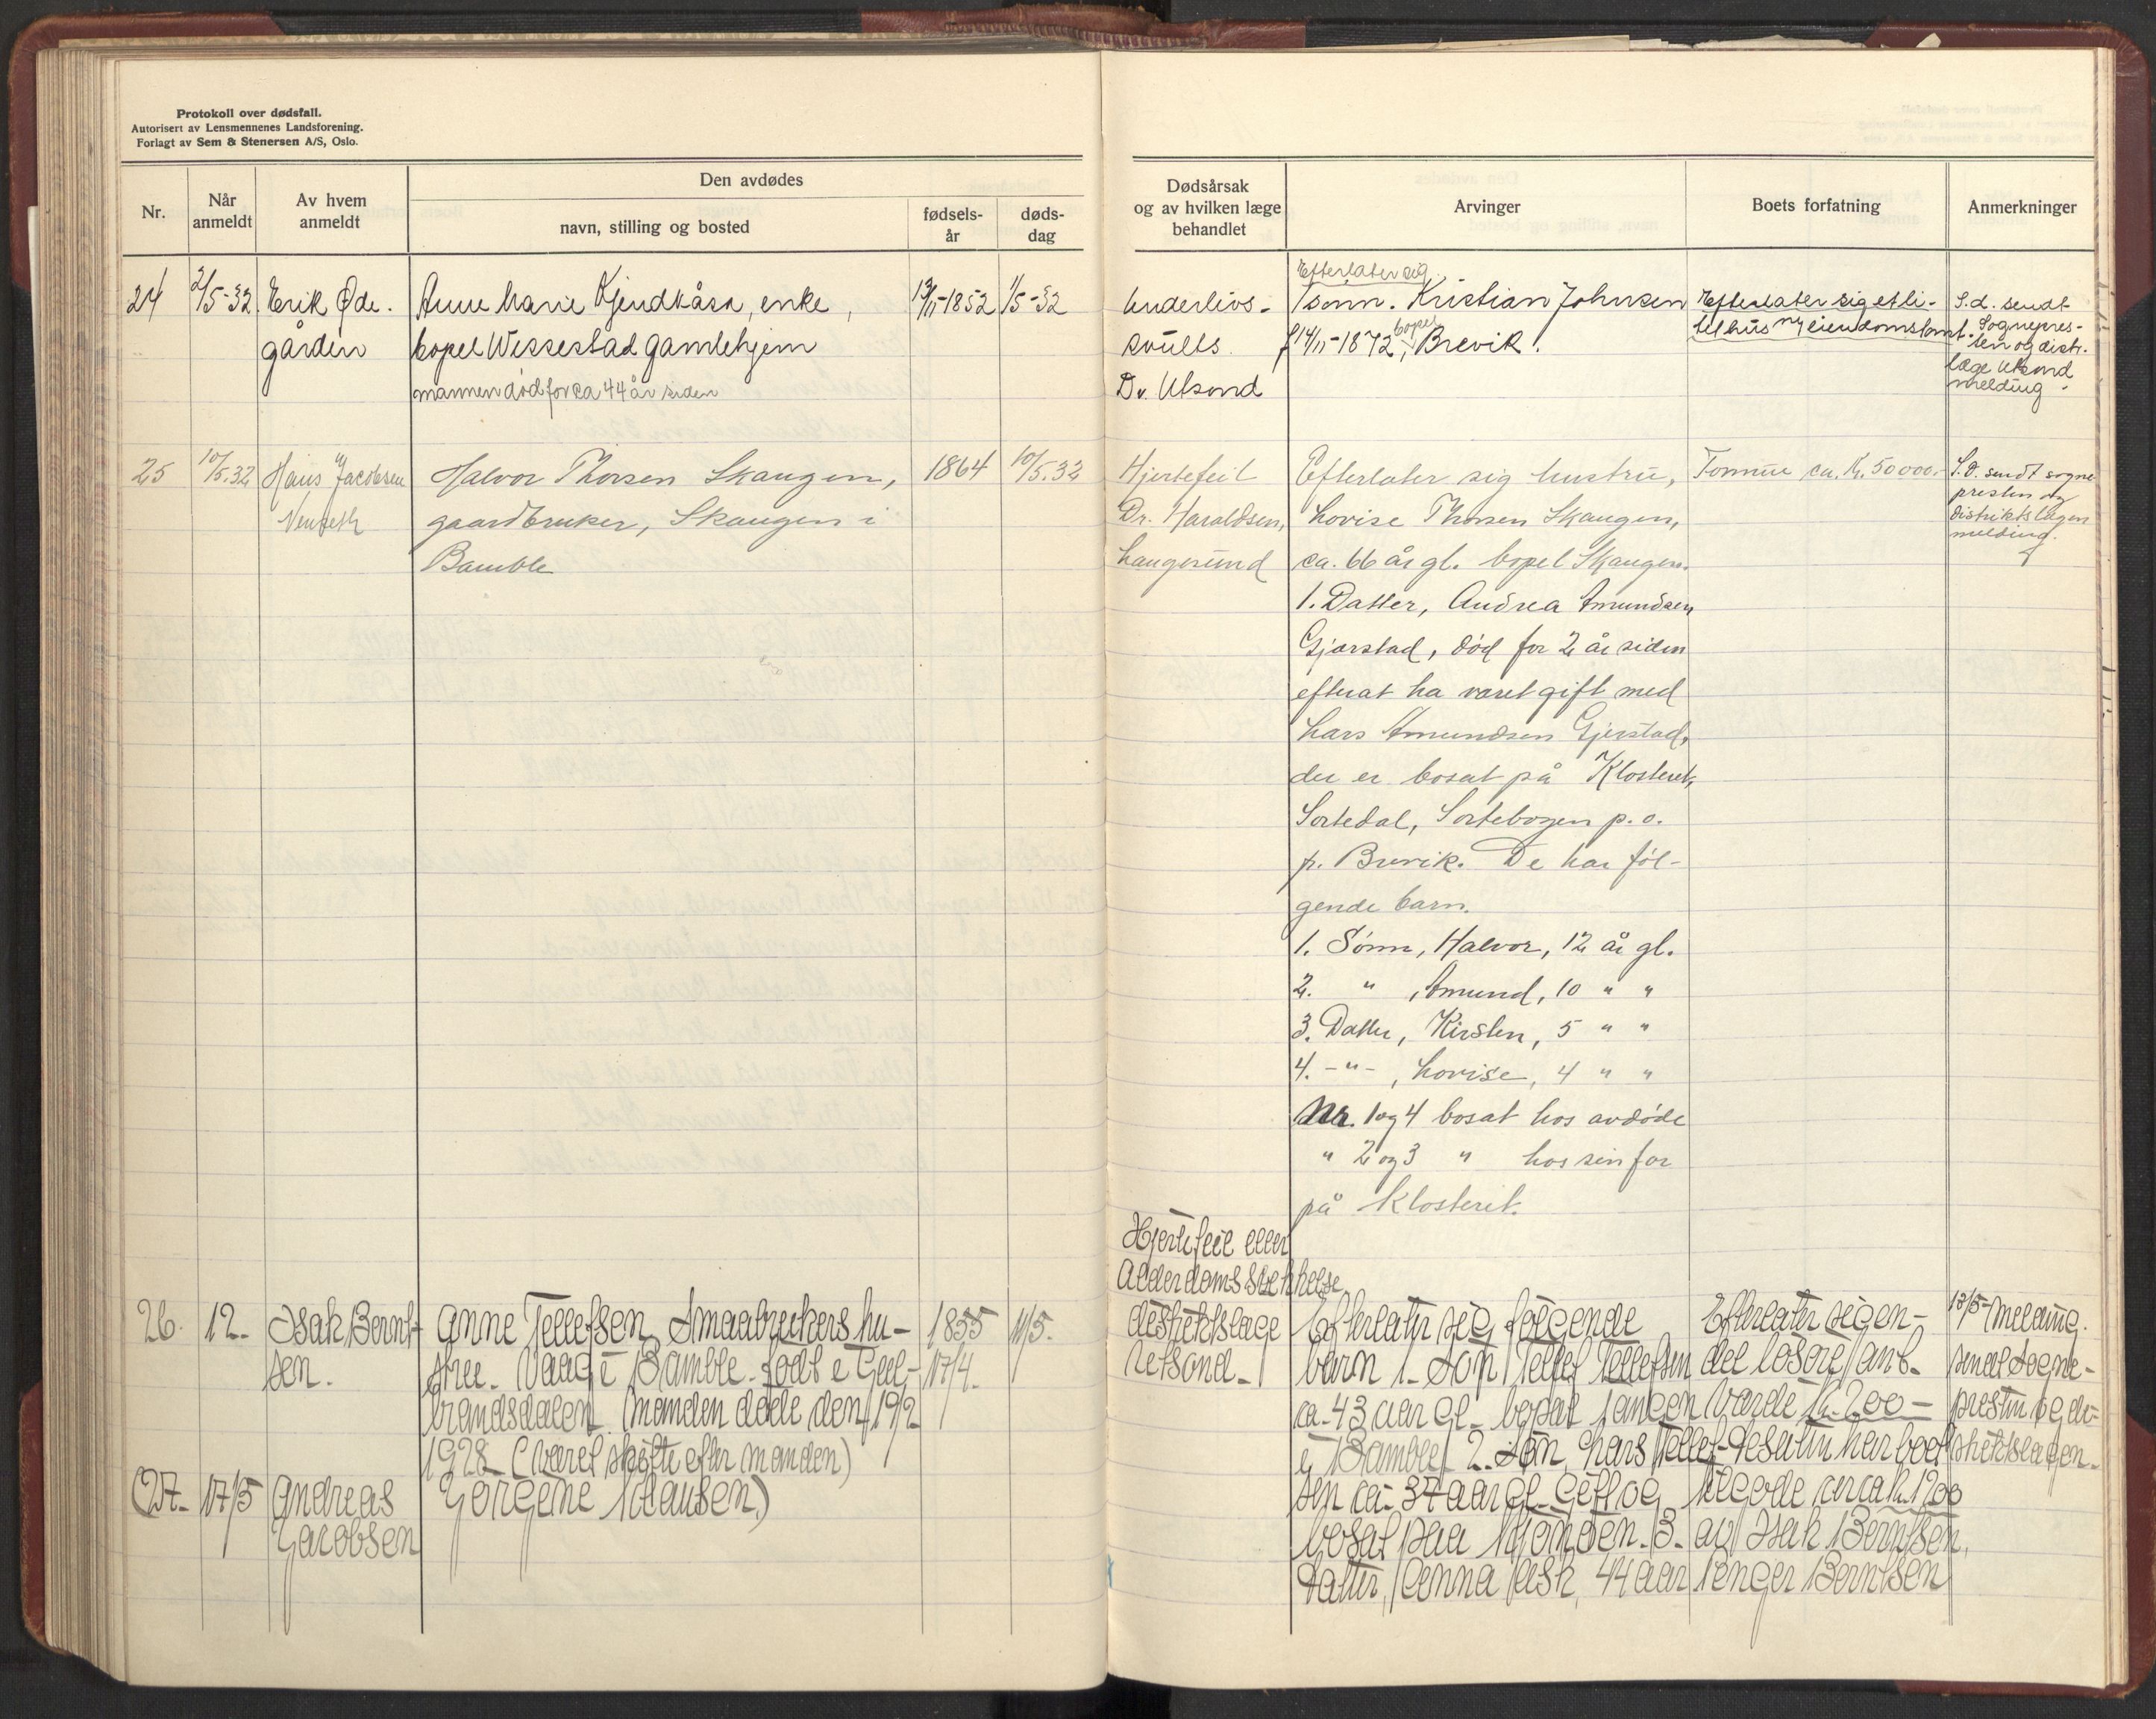 Protokoll over dødsfall.
Autorisert av Lensmennenes Landsforening.
Forlagt av Sem & Stenersen A/S, Oslo.
Nr.
Når
anmeldt
Av hvem
anmeldt
Den avdødes
navn, stilling og bosted
fødsels-
år
døds-
dag
Dødsårsak
og av hvilken læge
behandlet
Arvinger
Boets forfatning
Anmerkninger
24
2/5-32
Erik Øde-
gården
Anne Marie Kjendkåsa, enke,
bopel Wissestad gamlehjem
mannen død for ca 44 år siden
1852
1/5-32
Underlivs-
svulls.
Dr. Ulsond
Efterlater sig
1 sønn. Kristian Johnsen
f 14/11-1872, bopel Brevik.
Efterlater sig et li-
tet hus eiendomstomt.
S.d. sendt
Sognepres-
ten og distr.
læge Ulsond
melding.
25
10/5.32
Hans Jacobsen
Halvor Thorsen Skaugen,
gaardbruker, Skaugen i
Bamble
1864
10/5.32
Hjertefeil
Dr. Haraldsen,
Langesund
Efterlater sig hustru,
Lovise Thorsen Skaugen,
ca. 66 år gl. bopel Skaugen.
1. Datter, Andrea Amundsen
Gjerstad, død for 2 år siden
efterat ha været gift med
Lars Amundsen Gjerstad,
der er bosat på Klosteret,
Sortedal, Sortebogen p.o.
p. Brevik. De har føl-
gende barn.
1. Sønn, Halvor, 12 år gl.
2. " , Amund, 10 " "
3. Datter, Kirsten, 5 " "
4. -"- , Lovise, 4 " "
Nr. 1 og 4 bosat hos avdøde
" 2 og 3 " hos sin far
på Klosteret.
Formue ca. Kr. 50000.-
S.D. sendt sogne
presten og
distriktslægen
melding.
26.
12.
Isak Bernt-
sen.
Anne Tellefsen, Smaabrukers hu-
stru. Vaag i Bamble. født i Gud-
brandsdalen. (Manden døde den 19/2
1928 (været skifte efter manden)
1855
17/4.
11/5.
Hjertefeil eller
Alderdomssvekkelse
distriktslæge
Ulsond.
Efterlater sig følgende
barn 1. Søn, Tellef Tellefsen
ca. 43 aar gl. bosat Langen
i Bamble. 2. Søn Lars Tellef-
sen ca. 37 aar gl. Gift og
bosat paa Kjønden. 3.
Datter, Anna Ask, 44 aar
Efterlater sig en-
del løsøre ant.
Værde kr. 200 -
Desuten har boet
tilgode circa kr. 1200
av Isak Berntsen,
Berntsen
13/5- melding.
sendt Sogne-
presten og di-
striktslægen.
(27.
17/5
Andreas
Jacobsen
Jørgine Klausen)